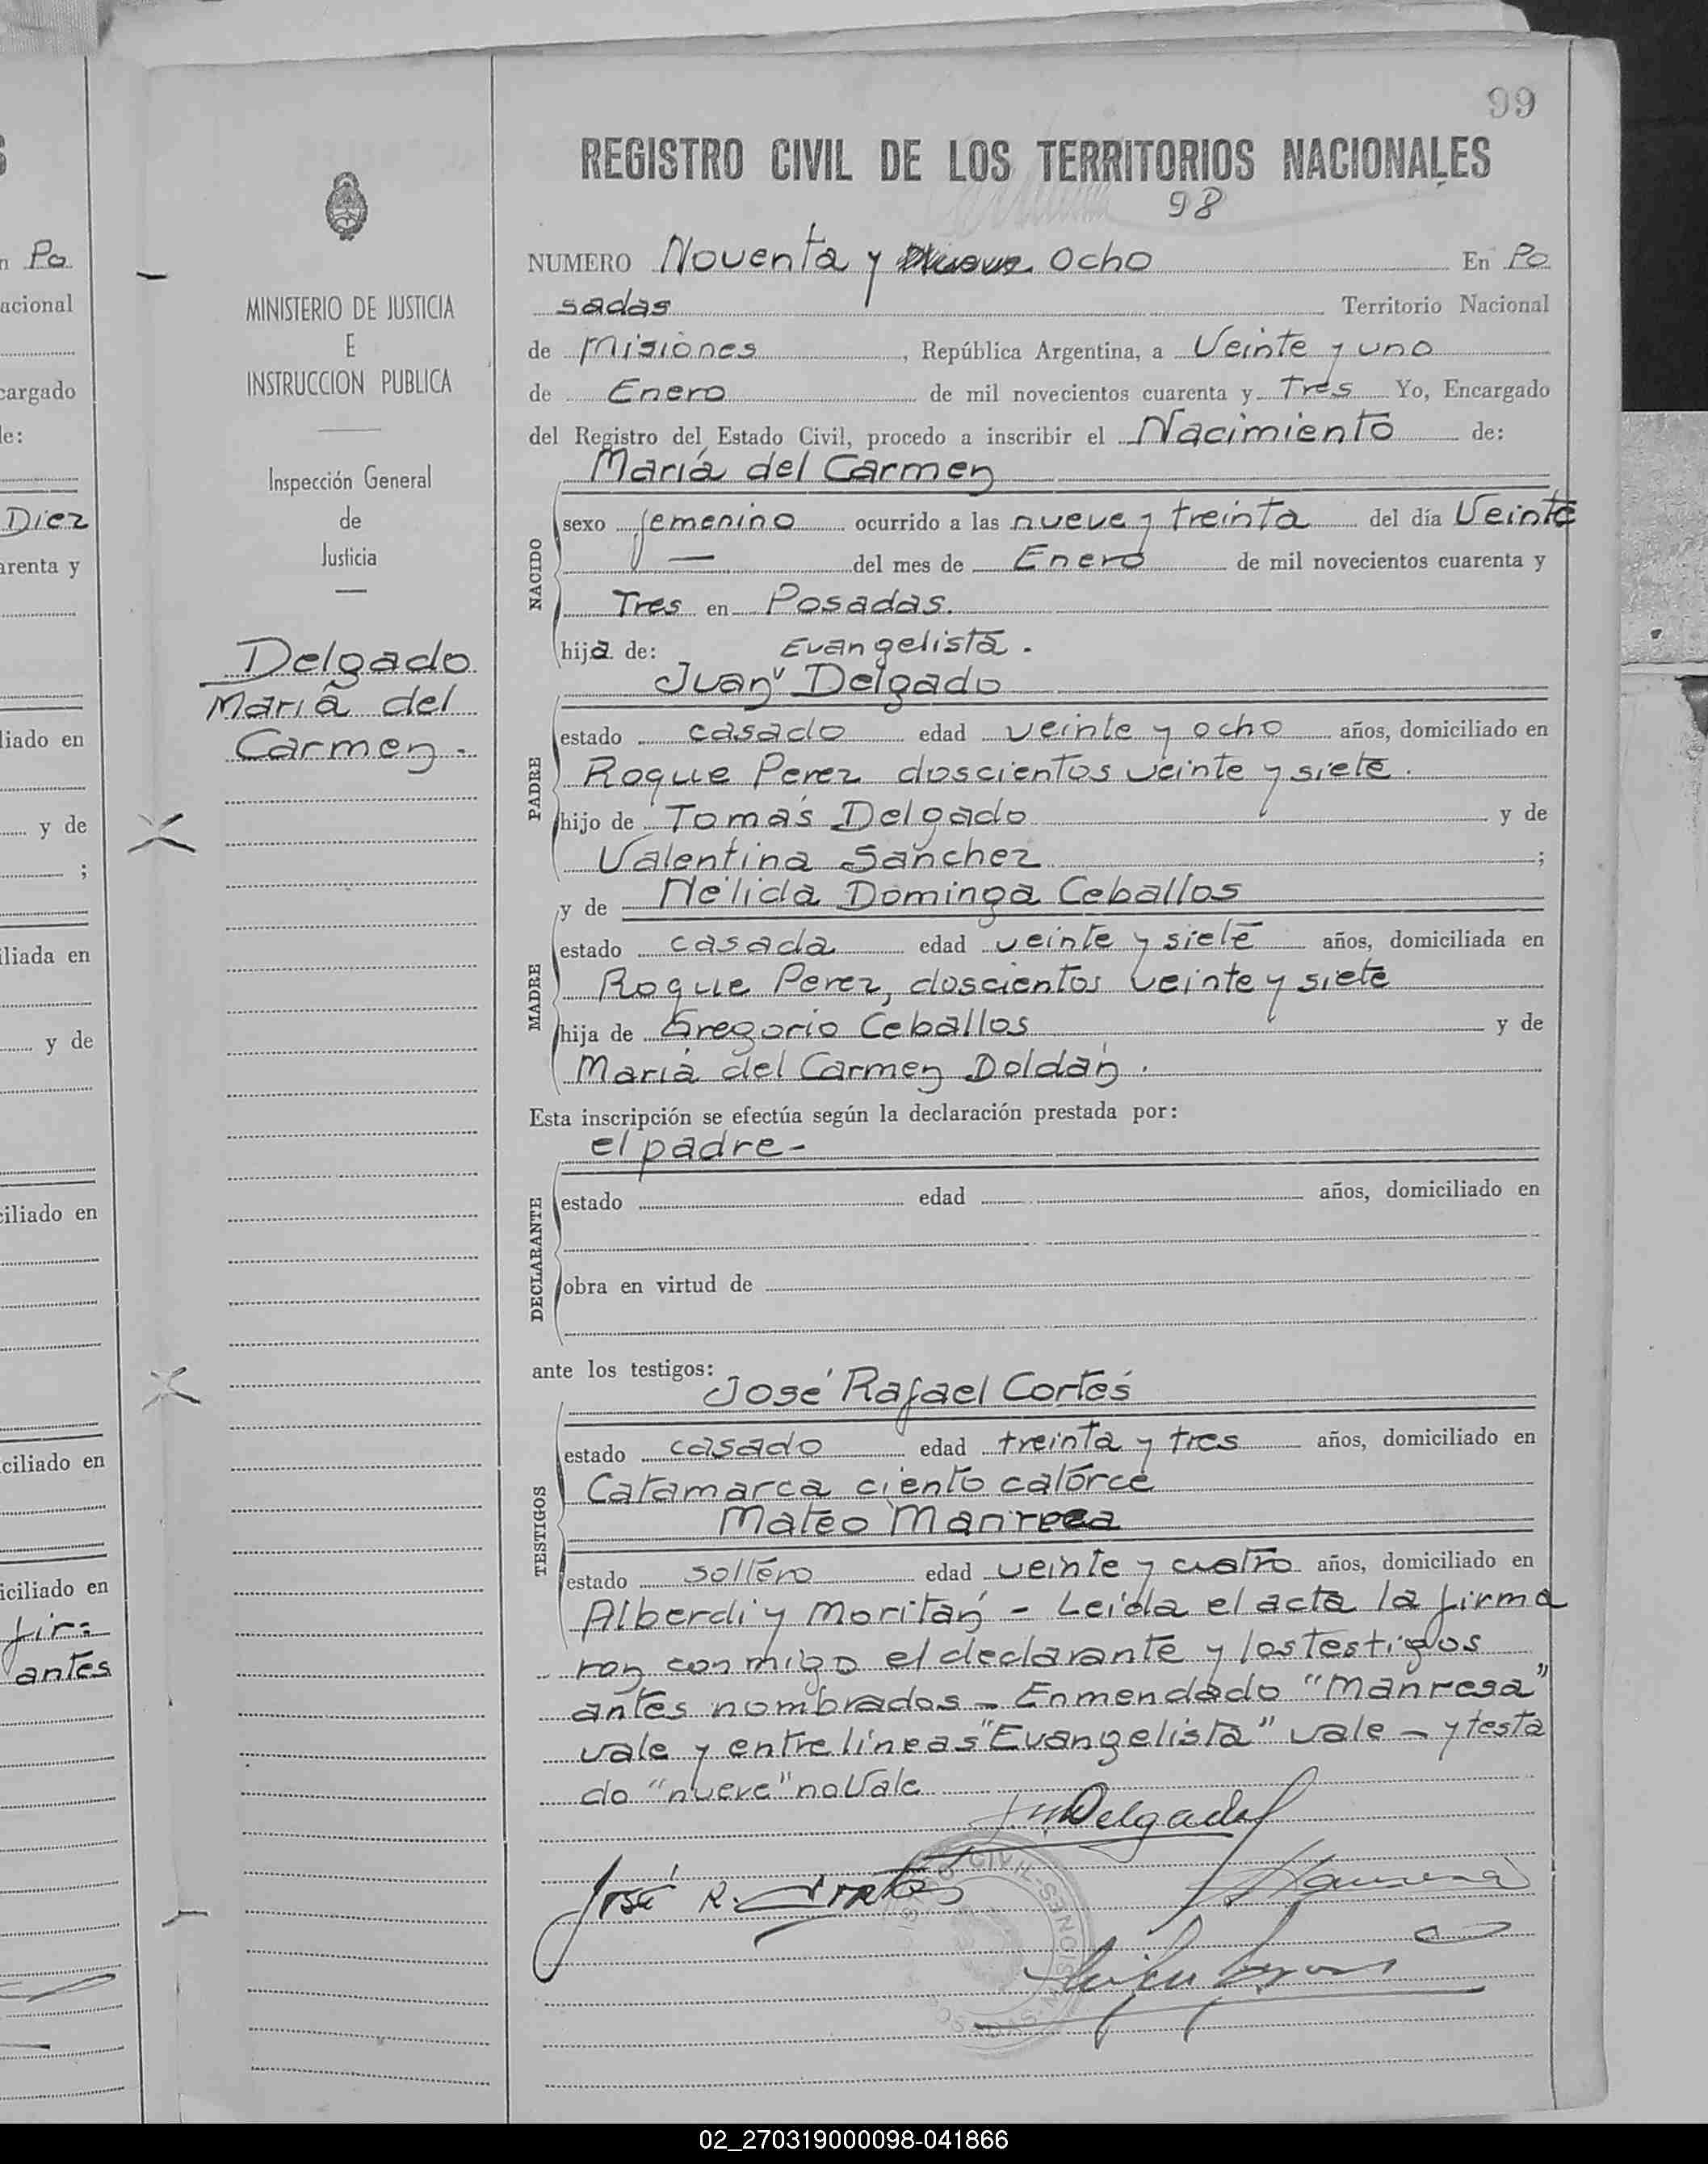 99
REGISTRO CIVIL DE LOS TERRITORIOS NACIONALES
98
NUMERO Noventa y nueve ocho En Po
sadas Territorio Nacional
de Misiones, República Argentina, a Veinte y uno
de Enero de mil novecientos cuarenta y Tres Yo, Encargado
del Registro del Estado Civil, procedo a inscribir el Nacimiento de:
María del Carmen
NACIDO
sexo femenino ocurrido a las nueve y treinta del día Veinte
— del mes de Enero de mil novecientos cuarenta y
Tres en Posadas.
hija de: Evangelista.
Juan Delgado
PADRE
estado casado edad veinte y ocho años, domiciliado en
Roque Perez doscientos veinte y siete.
hijo de Tomás Delgado y de
Valentina Sanchez ;
y de Nélida Dominga Ceballos
MADRE
estado casada edad veinte y siete años, domiciliada en
Roque Perez, doscientos veinte y siete
hija de Gregorio Ceballos y de
María del Carmen Doldán.
Esta inscripción se efectúa según la declaración prestada por:
el padre-
DECLARANTE
estado edad años, domiciliado en
obra en virtud de
ante los testigos:
José Rafael Cortés
TESTIGOS
estado casado edad treinta y tres años, domiciliado en
Catamarca ciento catorce
Mateo Manresa
estado soltero edad veinte y cuatro años, domiciliado en
Alberdi y Moritán - Leida el acta la firma
ron conmigo el declarante y los testigos
antes nombrados - Enmendado "Manresa"
vale y entre líneas "Evangelista" vale - y testa
do "nueve" no Vale
Delgado
José R. Cortés
Manresa
MINISTERIO DE JUSTICIA
E
INSTRUCCION PUBLICA
Inspección General
de
Justicia
Delgado
María del
Carmen -
n Po
acional
cargado
le:
Diez
arenta y
liado en
y de
;
iliada en
y de
ciliado en
ciliado en
iciliado en
fir=
antes
02_270319000098-041866